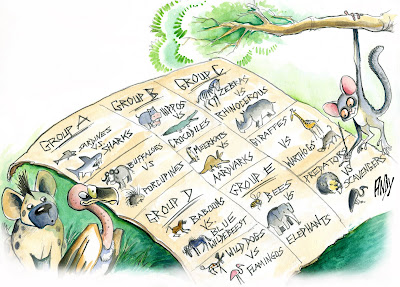 GROUP A
SARDINES
VS
SHARKS
BUFFALOES
VS
PORCUPINES
GROUP B
HIPPOS
VS
CROCODILES
MEERKATS
VS
AARDVARKS
GROUP C
ZEBRAS
VS
RHINOCEROUS
GIRAFFES
VS
WARTHOGS
GROUP D
BABOONS
VS.
BLUE
WILDEBEEST
WILD DOGS
VS
FLAMINGOS
GROUP E
BEES
VS
ELEPHANTS
PREDATORS
VS
SCAVENGERS
ANDY